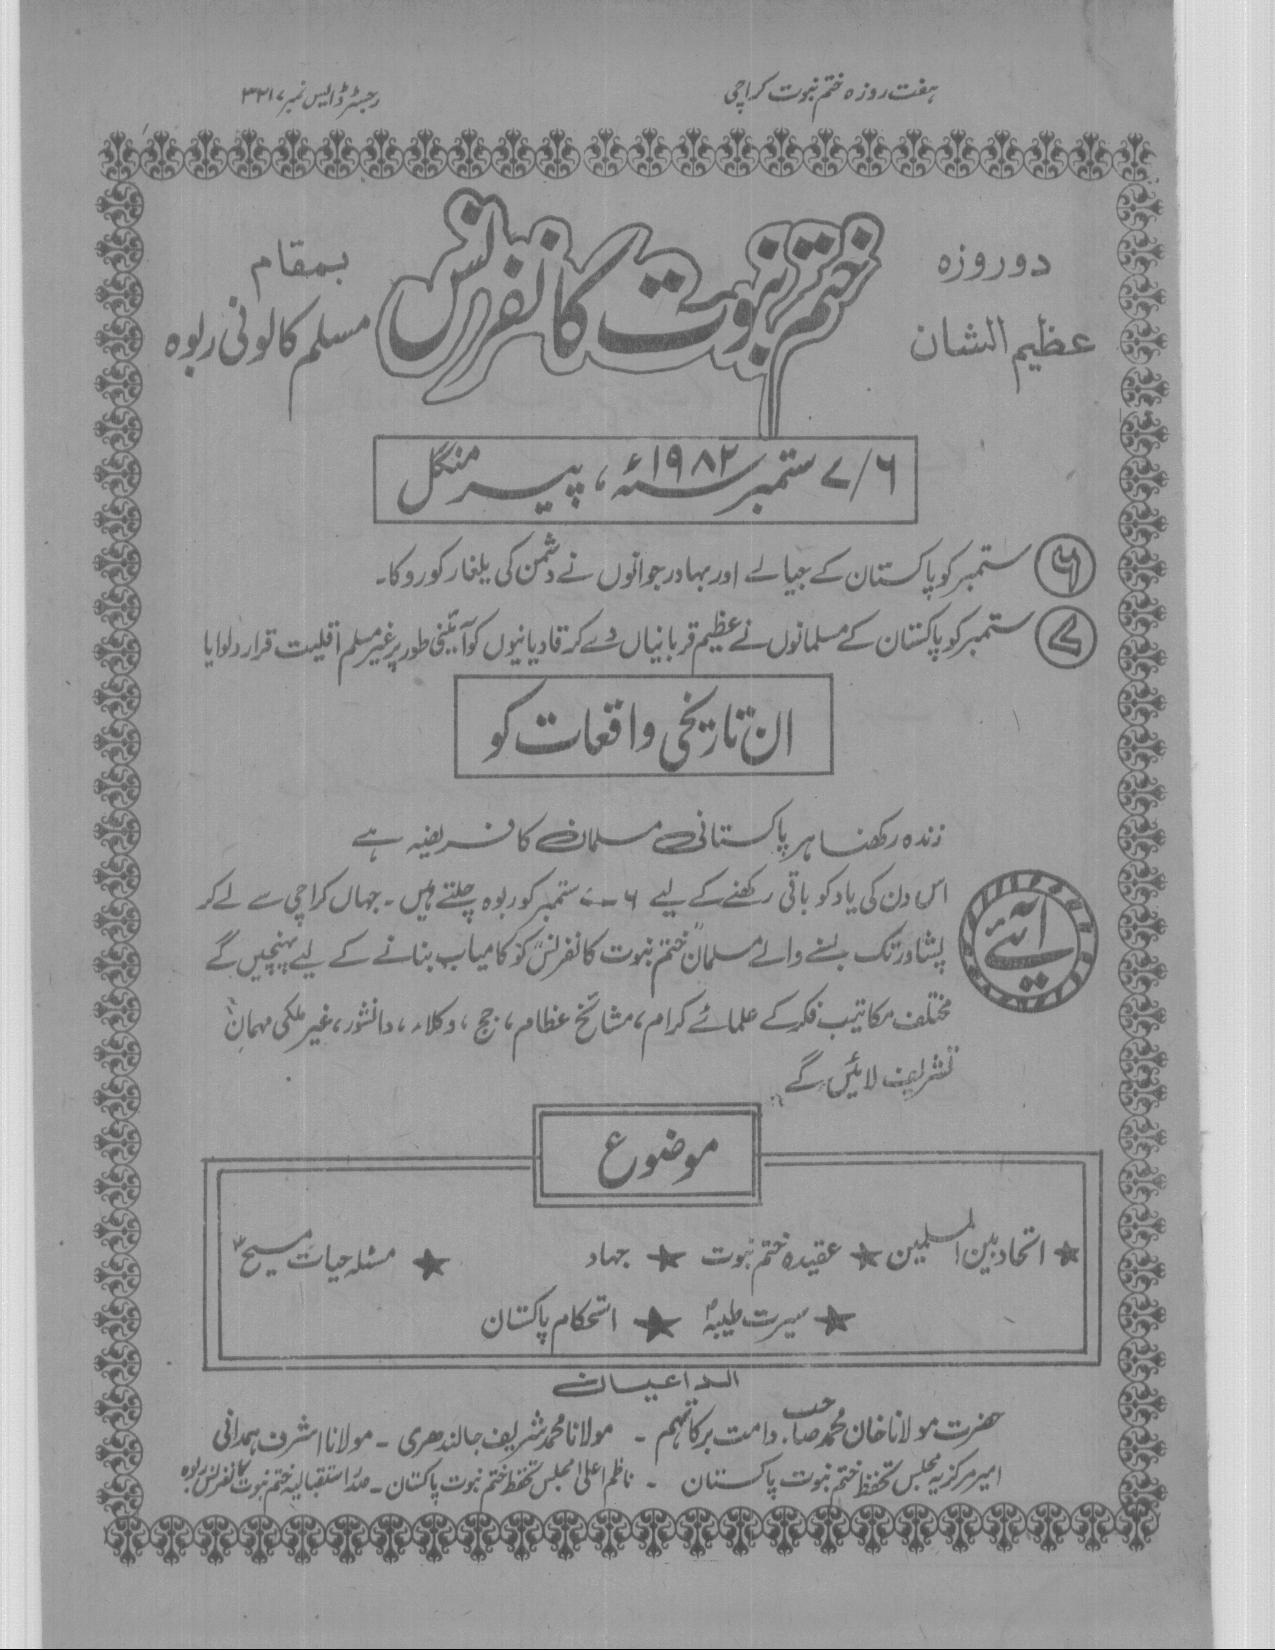 ہفت روزہ ختم نبوت کراچی
رجسٹرڈ ایس نمبر ۳۲۱۷
دو روزہ
عظیم الشان
ختم نبوت کانفرنس
بمقام
مسلم کالونی ربوہ
۶/۷ ستمبر ۱۹۸۲ء، پیر منگل
۶ ستمبر کو پاکستان کے جیالے اور بہادر جوانوں نے دشمن کی یلغار کو روکا۔
۷ ستمبر کو پاکستان کے مسلمانوں نے عظیم قربانیاں دے کر قادیانیوں کو آئینی طور پر غیر مسلم اقلیت قرار دلوایا
ان تاریخی واقعات کو
زندہ رکھنا ہر پاکستانی مسلمان کا فریضہ ہے
آیئے
اس دن کی یاد کو باقی رکھنے کے لیے ۶-۷ ستمبر کو ربوہ چلتے ہیں۔ جہاں کراچی سے لے کر
پشاور تک بسنے والے مسلمان "ختم نبوت کانفرنس" کو کامیاب بنانے کے لیے پہنچیں گے
مختلف مکاتیب فکر کے علمائے کرام، مشائخ عظام، جج، وکلاء، دانشور، غیر ملکی مہمان
تشریف لائیں گے
موضوع
★ اتحاد بین المسلمین ★ عقیدہ ختم نبوت ★ جہاد ★ مسئلہ حیات مسیحؑ
★ سیرت طیبہؐ ★ استحکام پاکستان
الداعیان
حضرت مولانا خان محمد صاحب دامت برکاتہم ۔ مولانا محمد شریف جالندھری ۔ مولانا اشرف ہمدانی
امیر مرکزیہ مجلس تحفظ ختم نبوت پاکستان ۔ ناظم اعلیٰ مجلس تحفظ ختم نبوت پاکستان ۔ صدر استقبالیہ ختم نبوت کانفرنس ربوہ